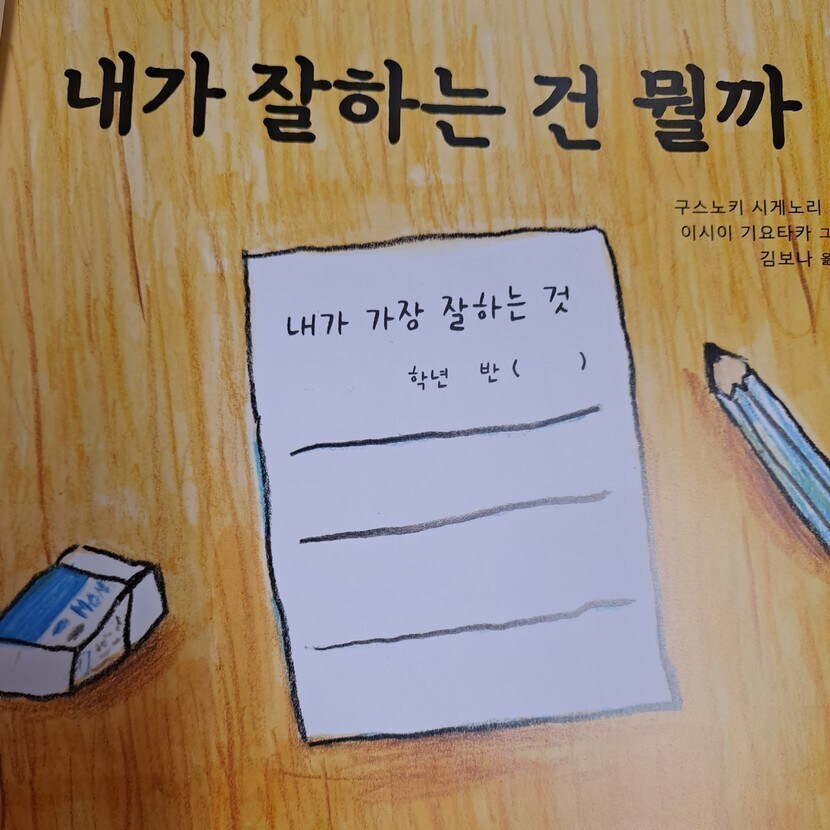 내가 잘하는 건 뭘까
구스노키 시게노리
이시이 기요타카 그
김보나
내가 가장 잘하는 것
학년 반 ( )